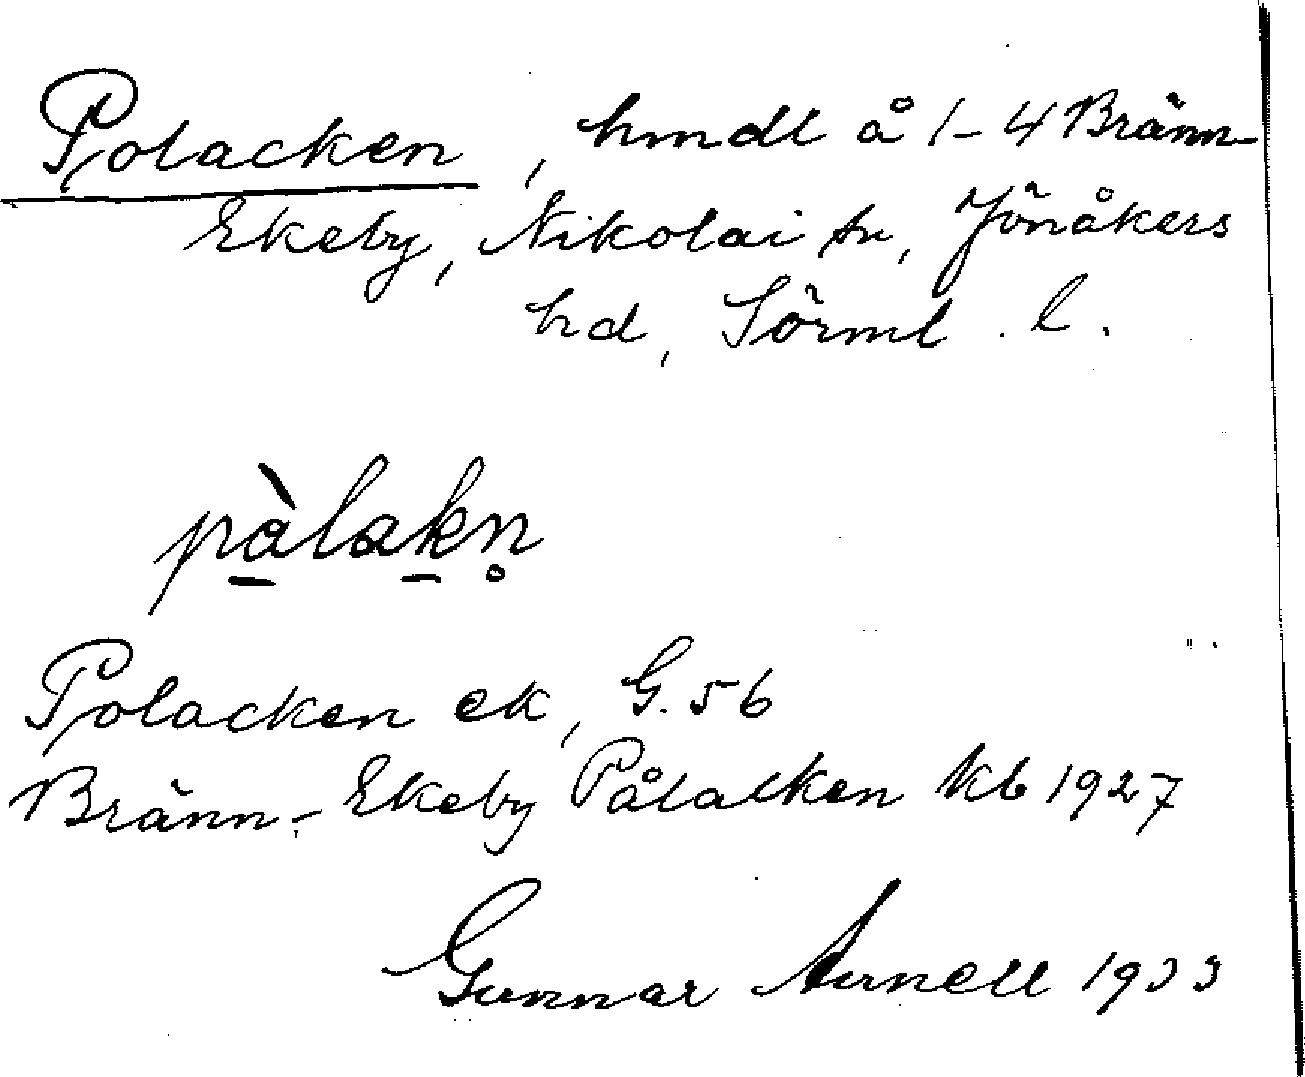 Polacken, hmdl å 1-4 Bränn-
Ekeby, Nikolai sn, Jönåkers
hd, Sörml. l.
pàlakn̥
Polacken ek, G. 56
Bränn-Ekeby Pålacken kb 1927
Gunnar Arnell 1933